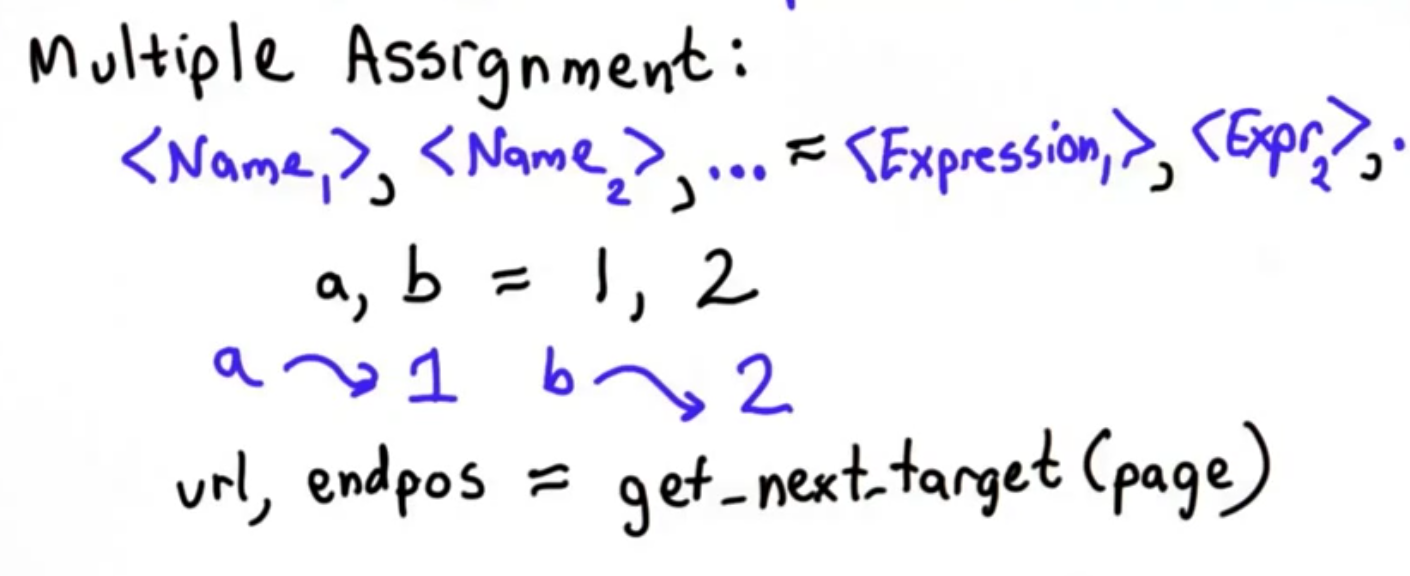 Multiple Assignment:
<Name₁>, <Name₂>, ... = <Expression₁>, <Expr₂>, .
a, b = 1, 2
a → 1 b → 2
url, endpos = get_next_target(page)